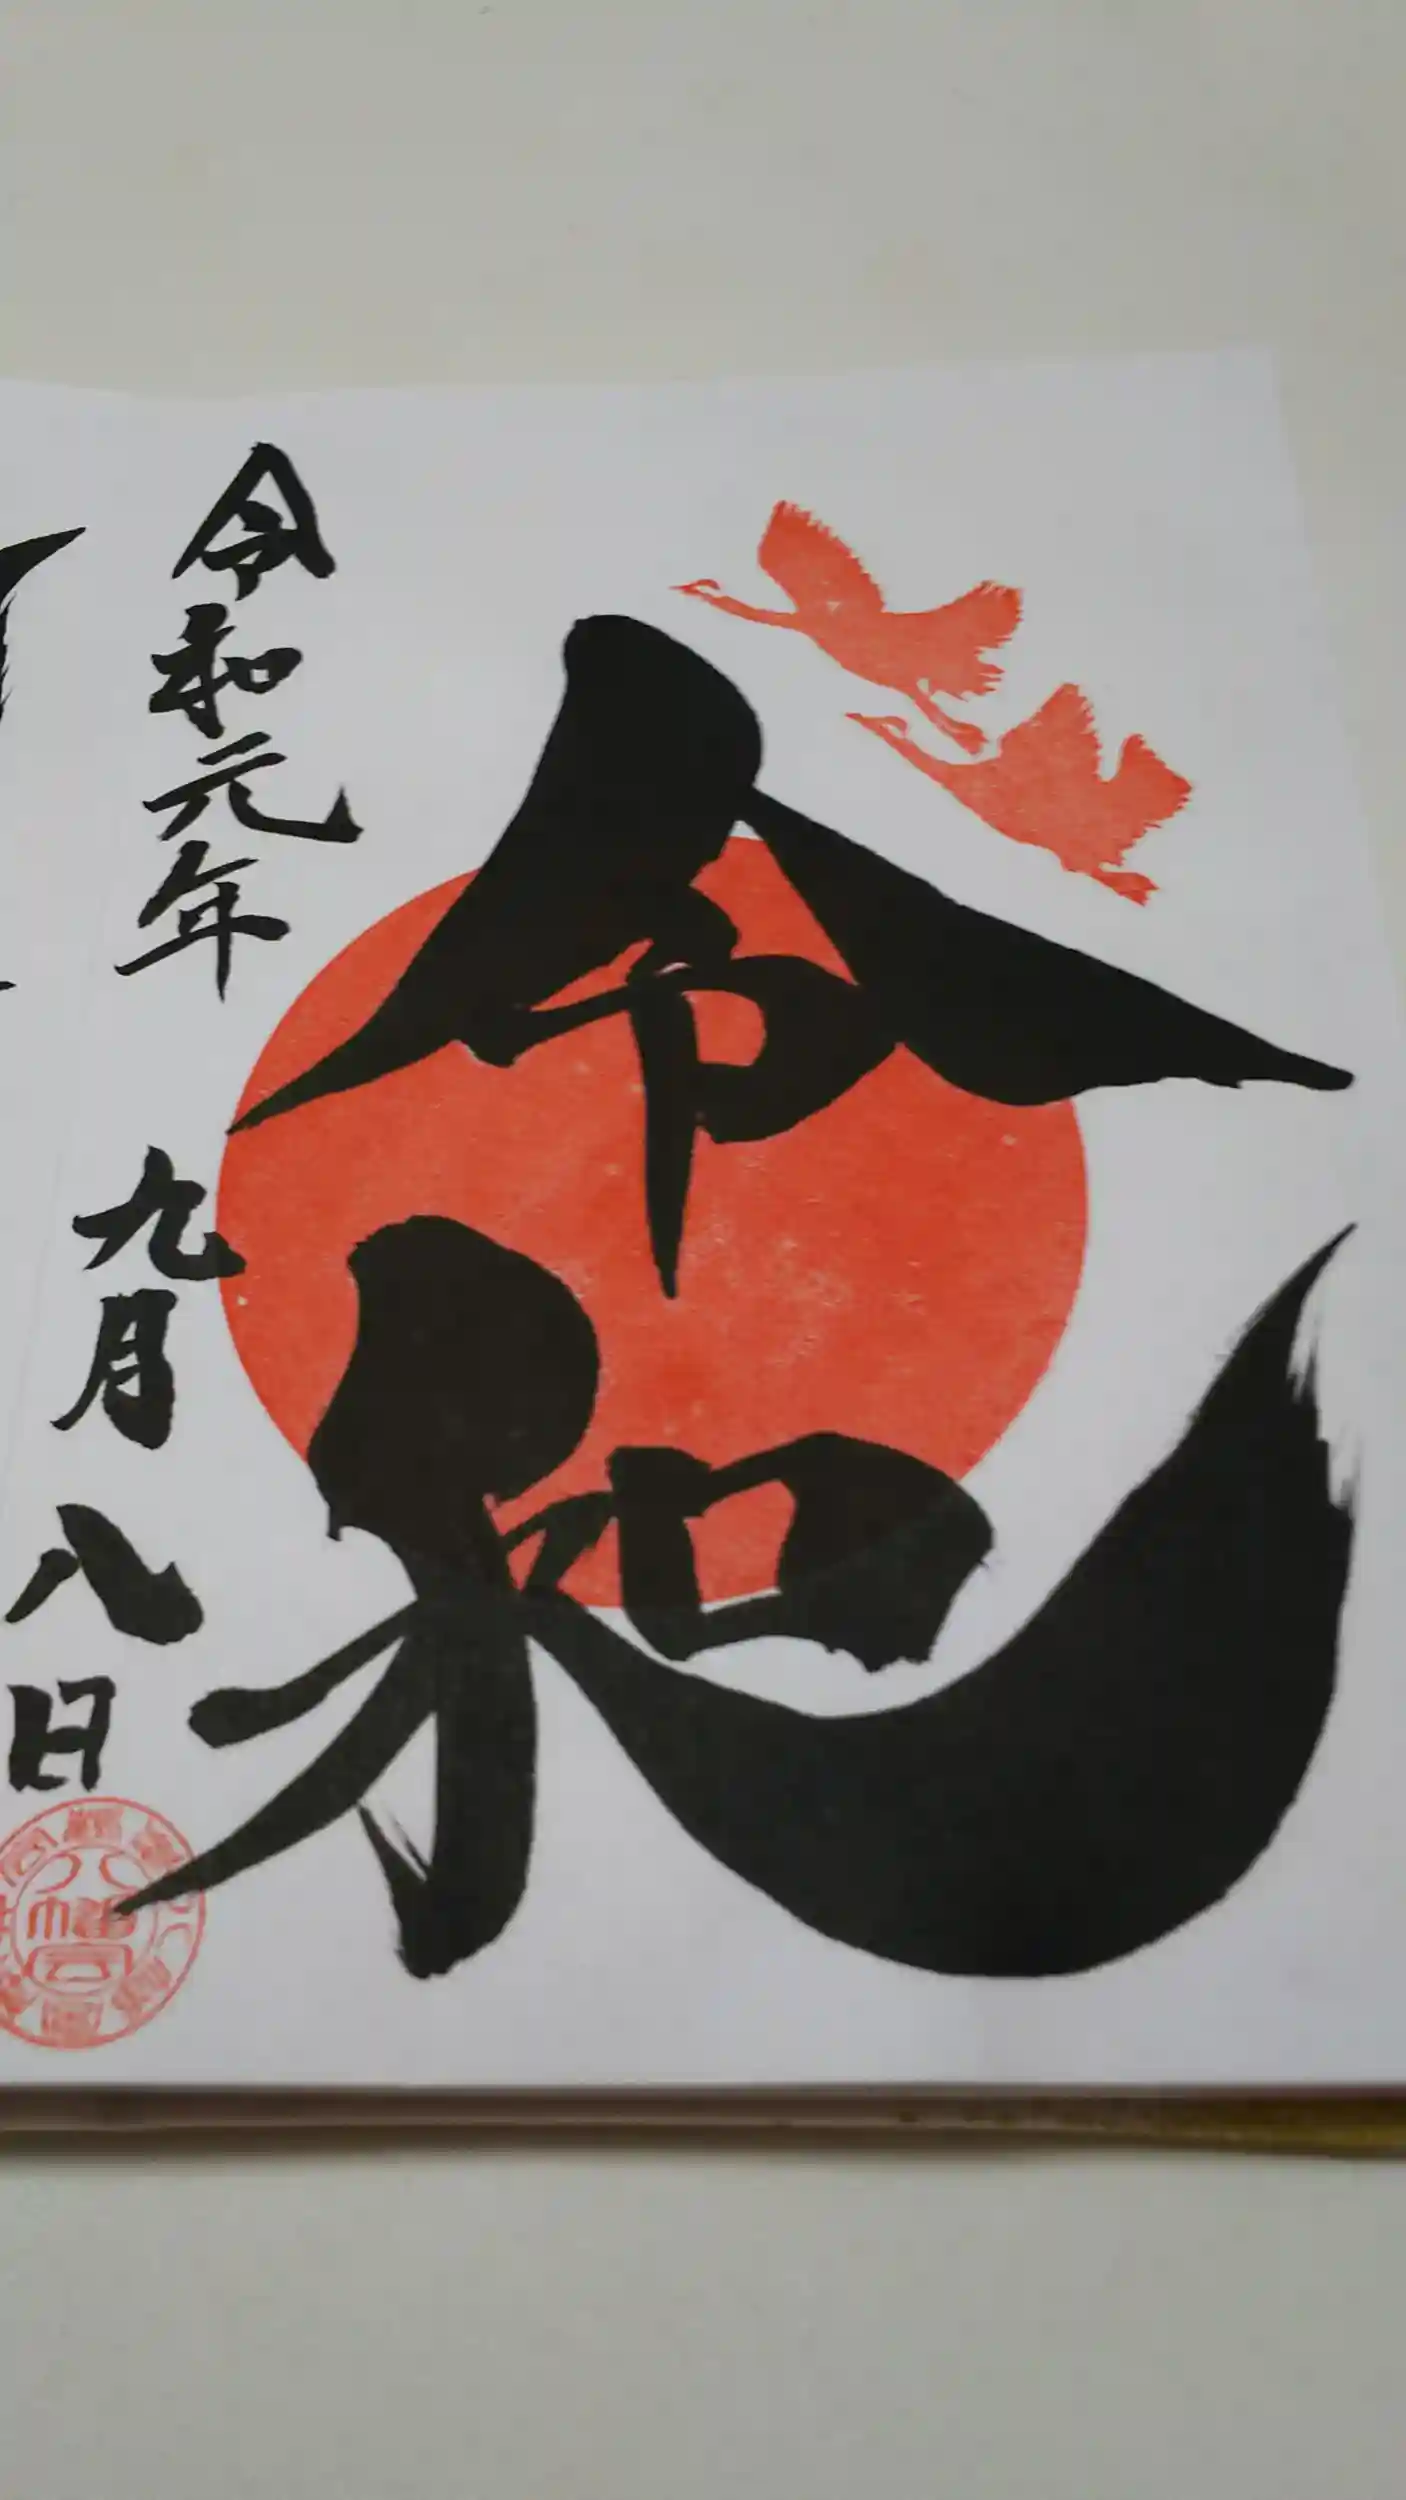 令和
令和元年 九月 八日